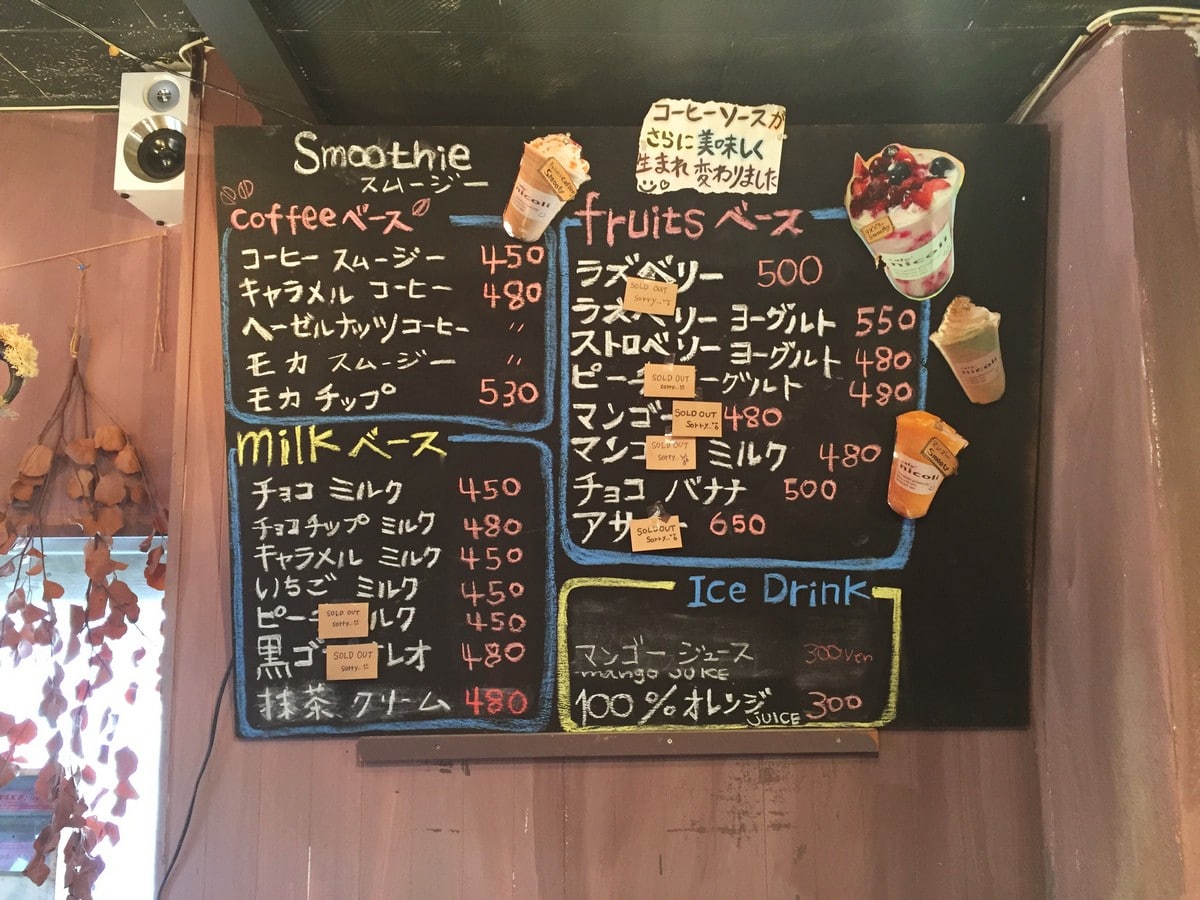 Smoothie
スムージー
コーヒーソースが
さらに美味しく
生まれ変わりました
coffeeベース
コーヒー スムージー 450
キャラメル コーヒー 480
ヘーゼルナッツコーヒー 〃
モカ スムージー 〃
モカ チップ 530
milkベース
チョコ ミルク 450
チョコチップ ミルク 480
キャラメル ミルク 450
いちご ミルク 450
ピー ルク 450
SOLD OUT
sorry...
黒ゴ レオ 480
SOLD OUT
sorry...
抹茶 クリーム 480
fruitsベース
ラズベリー 500
SOLD OUT
sorry...
ラズベリー ヨーグルト 550
ストロベリー ヨーグルト 480
ピー ーグルト 480
SOLD OUT
sorry...
マンゴー 480
SOLD OUT
sorry...
マンゴ ミルク 480
SOLD OUT
sorry...
チョコ バナナ 500
アサ ー 650
SOLD OUT
sorry...
Ice Drink
マンゴー ジュース 300yen
mango JUICE
100%オレンジ 300
JUICE
nicoli
cafe
nicoli
nicoli
cafe
nicoli